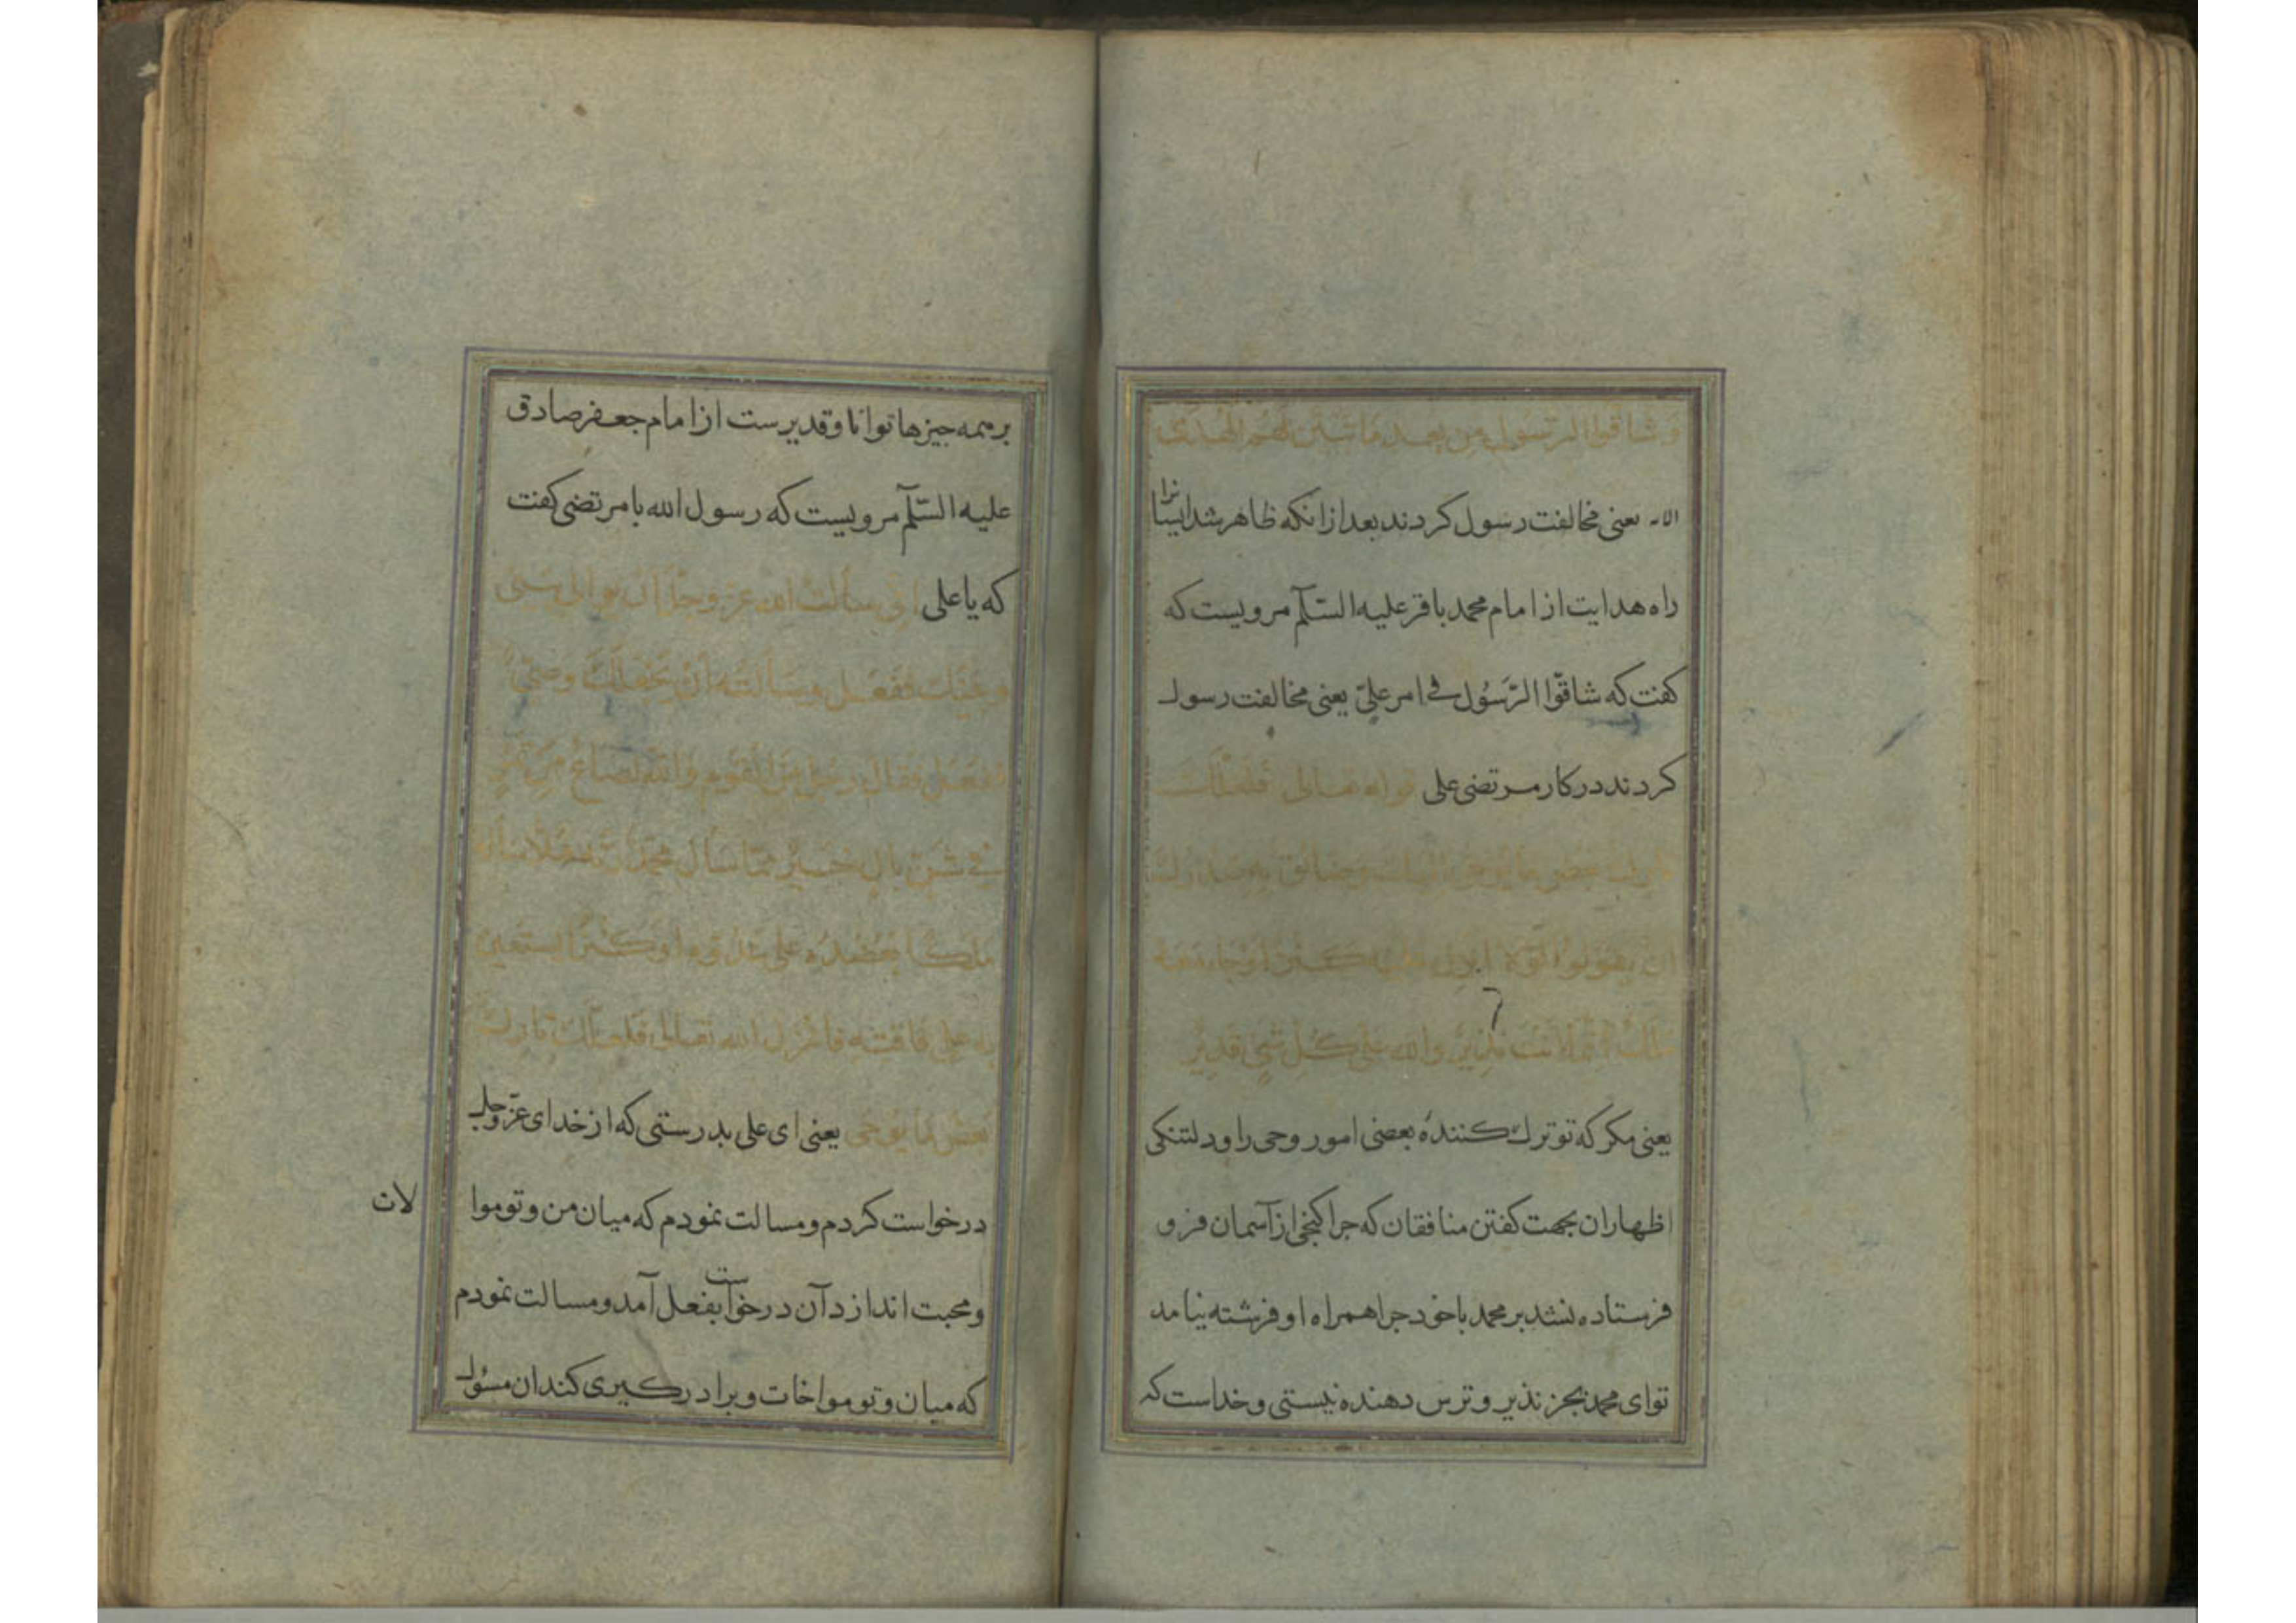 وشاقوا الرسول من بعد ما تبین لهم الهدی
الایه یعنی مخالفت رسول کردند بعد ازانکه ظاهر شد ایشانرا
راه هدایت از امام محمد باقر علیه السّلم مرویست که
کفت که شاقّوا الرّسُول فے امر علیّ یعنی مخالفت رسول
کردند در کار مرتضی علی قوله تعالی فَلَعَلَّکَ
تارك بعض ما یوحی الیك وضائق به صدرك
ان یقولوا لولا انزل علیه کنز اوجاء معه
ملك انما انت نذیر والله علی کل شی قدیر
یعنی مکر که تو ترك کنندهٔ بعضی امور وحی را و دلتنکی
اظهاران بجهت کفتن منافقان که جرا کنجی از آسمان فرو
فرستاده نشد بر محمد باخود جرا همراه او فرشته نیامد
تو ای محمد بجز نذیر و ترس دهنده نیستی و خداست که
برهمه جیزها توانا وقدیرست از امام جعفر صادق
علیه السّلم مرویست که رسول الله با مرتضی کفت
که یا علی انی سألت الله عز وجل ان یوالی بینی
وبینك ففعل وسألته ان یجعلك وصیی
ففعل فقال رجل من القوم والله لصاع من تمر
فے شن بال خیر مما سأل محمد ربه فهلا سأله
ملکا یعضده علی عدوه او کنزا یستعین
به علی فاقته فانزل الله تعالی فلعلك تارك
بعض ما یوحی یعنی ای علی بدرستی که از خدای عزّوجل
درخواست کردم ومسالت نمودم که میان من وتو موا
لات
ومحبت اندازد آن درخواست بفعل آمد ومسالت نمودم
که میان وتو مواخات وبرادرکیری کند ان مسئول